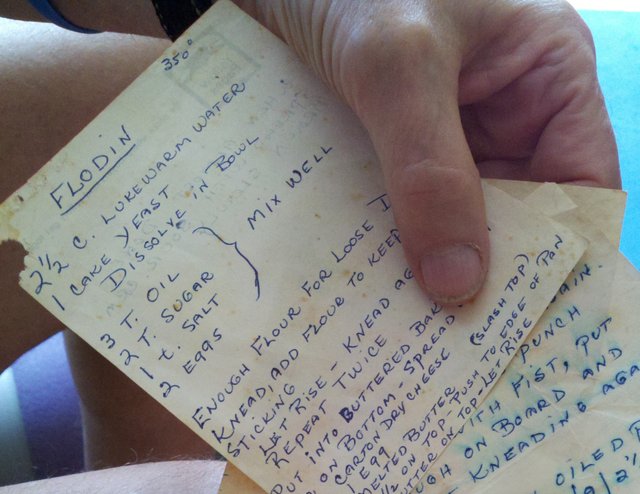 350°
FLODIN
2½ C. LUKEWARM WATER
1 CAKE YEAST
DISSOLVE IN BOWL
3 T. OIL
2 T. SUGAR
1 t. SALT
2 EGGS
} MIX WELL
ENOUGH FLOUR FOR LOOSE
KNEAD, ADD FLOUR TO KEEP
STICKING
LET RISE - KNEAD
REPEAT TWICE
PUT INTO BUTTERED
ON BOTTOM - SPREAD
CARTON DRY CHEESE
1 EGG
MELTED BUTTER (SLASH TOP)
½ ON TOP. PUSH TO EDGE OF PAN
BUTTER ON TOP. LET RISE
PUNCH
WITH FIST, PUT
ON BOARD AND
KNEADING
OILED